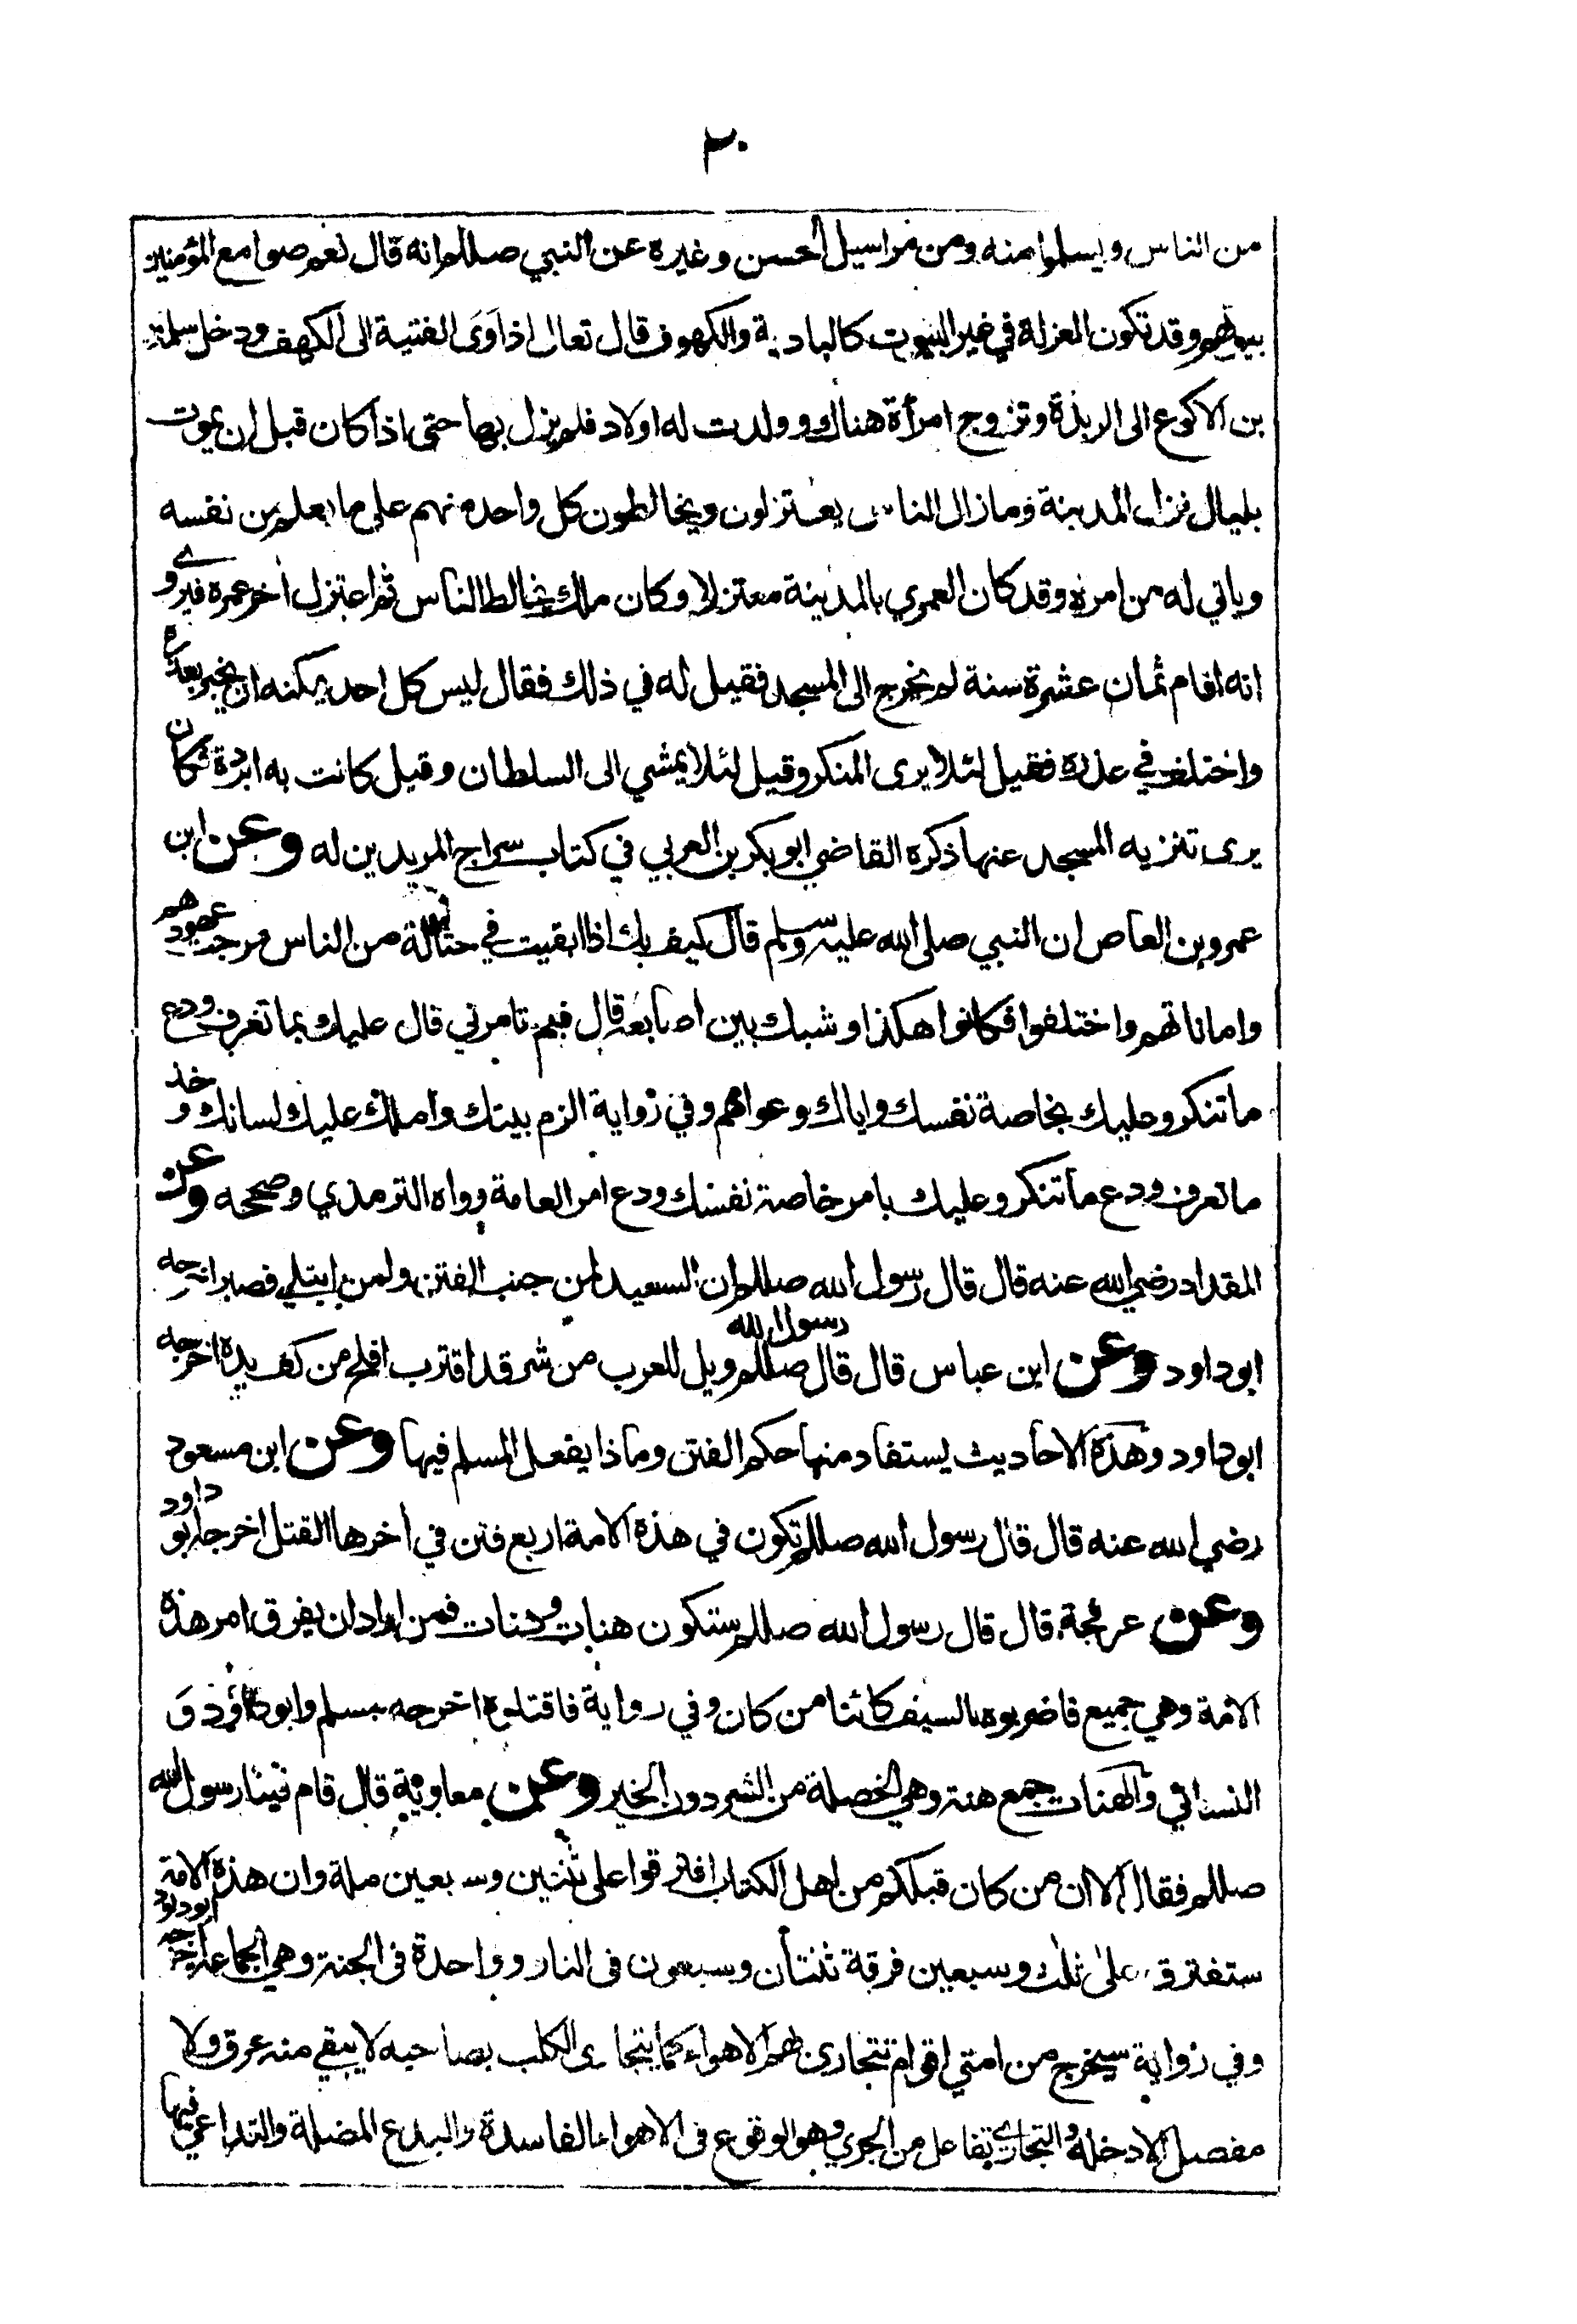 ٣٠
من الناس ويسلموا منه ومن مراسيل الحسن وغيره عن النبي صللم انه قال نعم صوامع المؤمنين
بيوتهم وقد تكون العزلة في غير البيوت كالبادية والكهوف قال تعالى اذ اوى الفتية الى الكهف ودخل سلمة
بن الاكوع الى الربذة وتزوج امرأة هناك وولدت له اولاد فلم يزل بها حتى اذا كان قبل ان يموت
بليال نزل المدينة وما زال الناس يعتزلون ويخالطون كل واحد منهم على ما يعلم من نفسه
وياتي له من امره وقد كان العمري بالمدينة معتزلا وكان مالك يخالط الناس ثم اعتزل اخر عمره فيروى
انه اقام ثمان عشرة سنة لم يخرج الى المسجد فقيل له في ذلك فقال ليس كل احد يمكنه ان يخبر بعذره
واختلف في عذره فقيل لئلا يرى المنكر وقيل لئلا يمشي الى السلطان وقيل كانت به ابردة فكان
يرى تنزيه المسجد عنها ذكره القاضي ابو بكر بن العربي في كتاب سراج المريدين له وعن ابن
عمرو بن العاص ان النبي صلى الله عليه وسلم قال كيف بك اذا ابقيت في حثالة من الناس مرجت عهودهم
واماناتهم واختلفوا فكانوا هكذا وشبك بين اصابعه قال فبم تامرني قال عليك بما تعرف ودع
ما تنكر وعليك بخاصة نفسك واياك وعوامهم وفي رواية الزم بيتك واملك عليك لسانك وخذ
ما تعرف ودع ما تنكر وعليك بامر خاصة نفسك ودع امر العامة رواه الترمذي وصححه وعن
المقداد رضي الله عنه قال قال رسول الله صللم ان السعيد لمن جنب الفتن ولمن ابتلي فصبر اخرجه
ابو داود وعن ابن عباس قال قال رسول الله صللم ويل للعرب من شر قد اقترب افلح من كف يده اخرجه
ابو داود وهذه الاحاديث يستفاد منها حكم الفتن وماذا يفعل المسلم فيها وعن ابن مسعود
رضي الله عنه قال قال رسول الله صللم تكون في هذه الامة اربع فتن في اخرها القتل اخرجه ابو داود
وعن عرفجة قال قال رسول الله صللم ستكون هنات وهنات فمن اراد ان يفرق امر هذه
الامة وهي جميع فاضربوه بالسيف كائنا من كان وفي رواية فاقتلوه اخرجه مسلم وابو داؤد و
النسائي والهنات جمع هنة وهي الخصلة من الشر دون الخير وعن معاوية قال قام فينا رسول الله
صللم فقال الا ان من كان قبلكم من اهل الكتاب افترقوا على ثنتين وسبعين ملة وان هذه الامة
ستفترق على ثلث وسبعين فرقة ثنتان وسبعون في النار وواحدة في الجنة وهي الجماعة اخرجه ابو داود
وفي رواية سيخرج من امتي اقوام تتجارى بهم الاهواء كما يتجارى الكلب بصاحبه لا يبقي منه عرق ولا
مفصل الا دخله والتجاري تفاعل من الجري وهو الوقوع في الاهواء الفاسدة والبدع المضلة والتداعي فيها